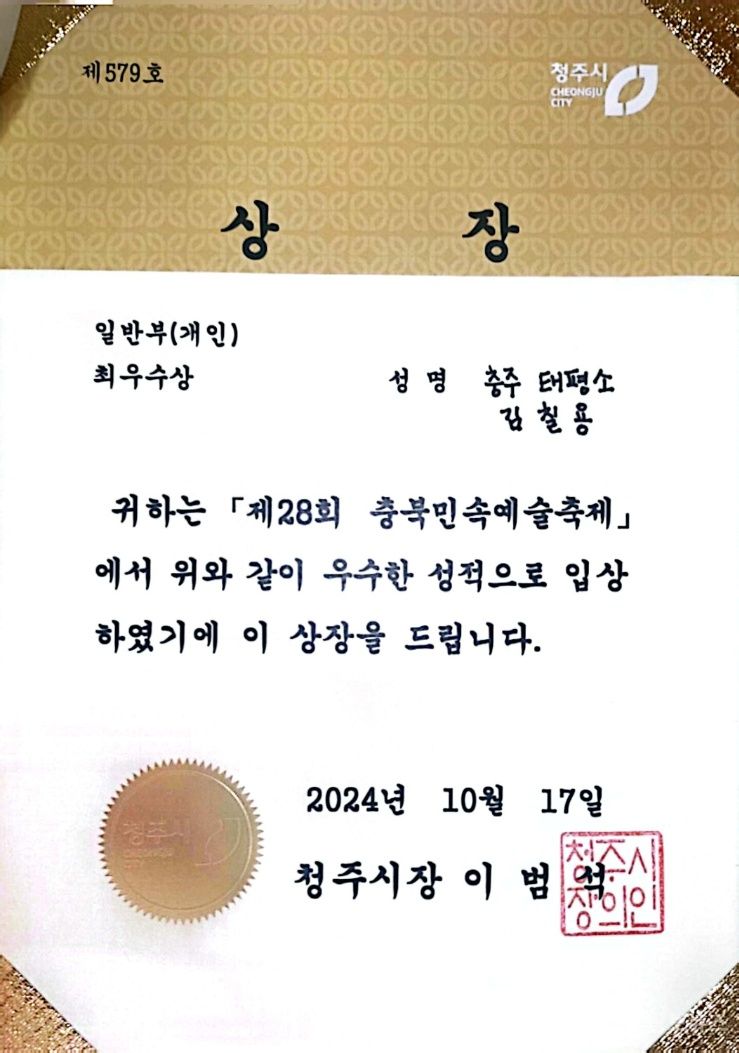 제579호
청주시
CHEONGJU
CITY
상 장
일반부(개인)
최우수상
성 명 충주 태평소
김 칠 용
귀하는 「제28회 충북민속예술축제」
에서 위와 같이 우수한 성적으로 입상
하였기에 이 상장을 드립니다.
2024년 10월 17일
청주시장 이 범 석
청주시
장의인
청주시